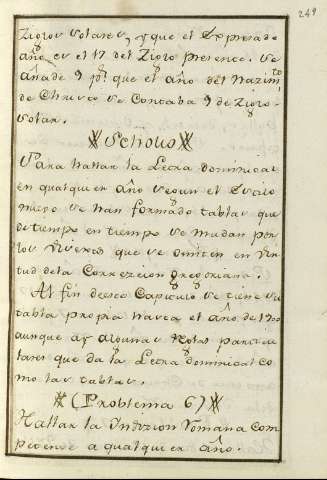 249
Ziqlos solares, y que el Expresado
año es el 17 del Ziqlo presente. Se
añade 9 pr. que el año del Nazimto.
de Christo se Contaba 9 de Ziqlo
solar.
Scholio
Para hallar la Letra dominical
en qualquier año segun el Estilo
nuevo se han formado tablas que
de tiempo en tiempo se mudan por
los Viviextos que se omiten en vir
tud dela Correzion gregoriana.
Al fin deeste Capitulo se tiene su
tabla propia hasta el año de 1700
aunque ay algunas Notas particu
lares que da la Letra dominical co
mo las tablas.
(Problema 6)
Hallar la Indizion Romana com
petente a qualquier año.